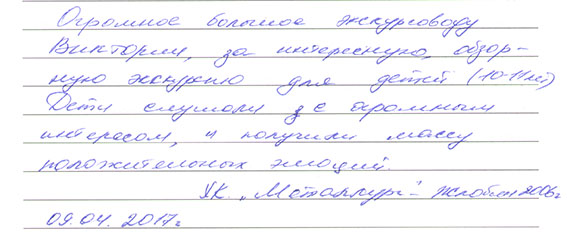 Огромное большое экскурсоводу
Виктории, за интересную, обзор-
ную экскурсию для детей (10-11 лет)
Дети слушали с огромным
интересом, и получили массу
положительных эмоций.
ХК. "Металлург" - Жлобин 2006г
09.04.2017г.